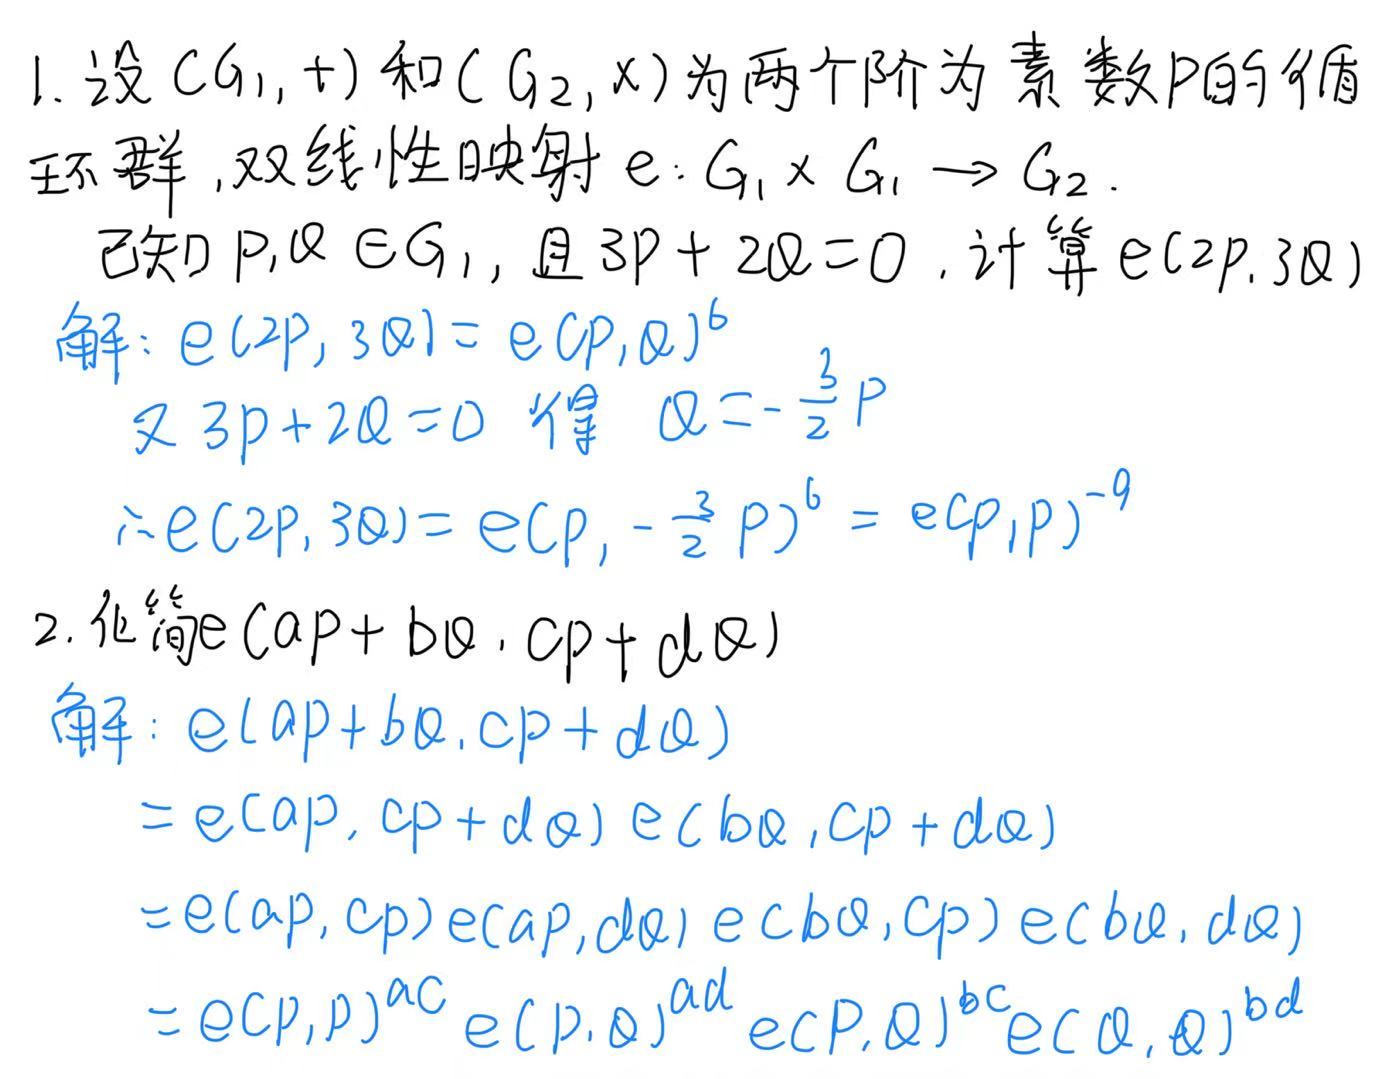 1. 设 (G₁, +) 和 (G₂, ×) 为两个阶为素数p的循
环群,双线性映射 e: G₁ × G₁ → G₂.
已知 P,Q ∈ G₁, 且 3P + 2Q = 0 . 计算 e(2P, 3Q)
解: e(2P, 3Q) = e(P, Q)⁶
又 3P + 2Q = 0 得 Q = - 3/2 P
∴ e(2P, 3Q) = e(P, - 3/2 P)⁶ = e(P, P)⁻⁹
2. 化简 e(aP + bQ, cP + dQ)
解: e(aP + bQ, cP + dQ)
= e(aP, cP + dQ) e(bQ, cP + dQ)
= e(aP, cP) e(aP, dQ) e(bQ, cP) e(bQ, dQ)
= e(P, P)^ac e(P, Q)^ad e(P, Q)^bc e(Q, Q)^bd